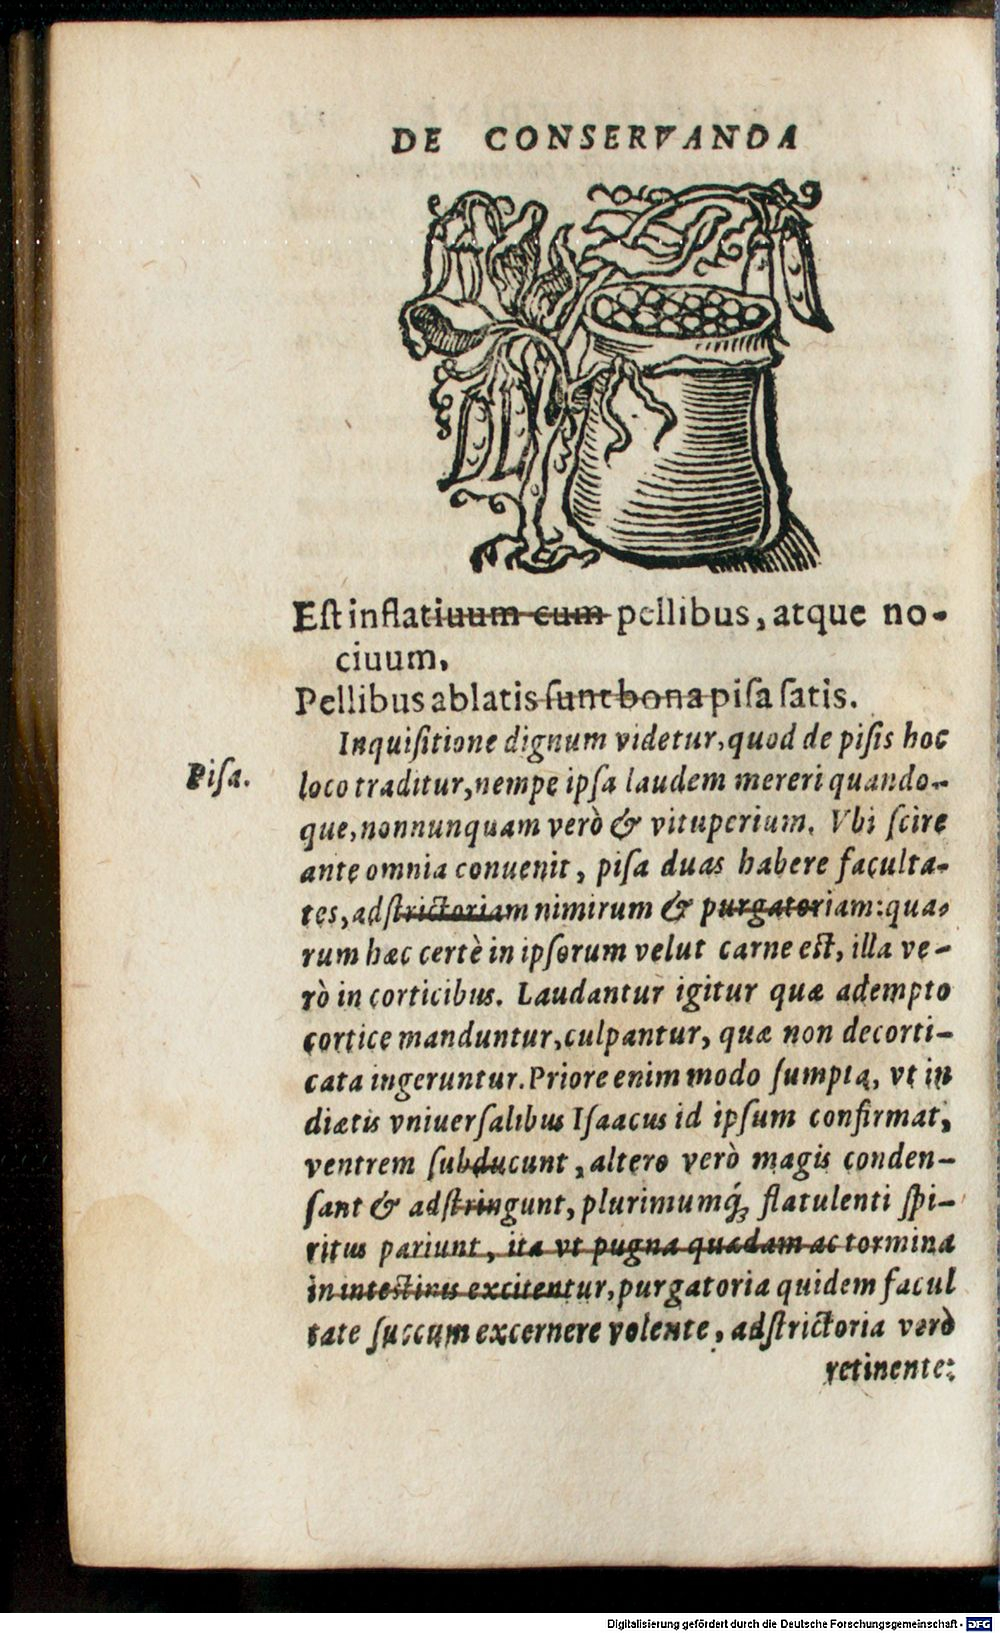 DE CONSERVANDA
Eſt inflatiuum cum pellibus, atque no-
ciuum.
Pellibus ablatis ſunt bona piſa ſatis.
Inquiſitione dignum videtur, quod de piſis hoc
Piſa.
loco traditur, nempe ipſa laudem mereri quando-
que, nonnunquam verò & vituperium. Vbi ſcire
ante omnia conuenit, piſa duas habere faculta-
tes, adſtrictoriam nimirum & purgatoriam: qua-
rum hæc certè in ipſorum velut carne eſt, illa ve-
rò in corticibus. Laudantur igitur quæ adempto
cortice manduntur, culpantur, quæ non decorti-
cata ingeruntur. Priore enim modo ſumpta, vt in
diætis vniuerſalibus Iſaacus id ipſum confirmat,
ventrem ſubducunt, altero verò magis conden-
ſant & adſtringunt, plurimumq́; flatulenti ſpi-
ritus pariunt, ita vt pugna quædam ac tormina
in inteſtinis excitentur, purgatoria quidem facul
tate ſuccum excernere volente, adſtrictoria verò
retinente:
Digitalisierung gefördert durch die Deutsche Forschungsgemeinschaft - DFG